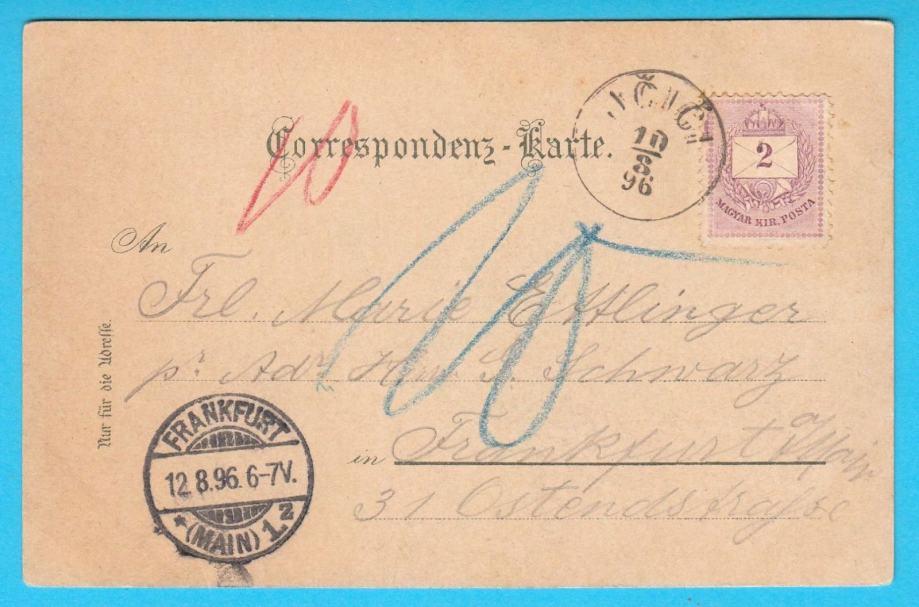 Correspondenz-Karte.
10
10
10
8
96
2
MAGYAR KIR. POSTA
An
Frl. Marie Ettlinger
pr Adr Hrn S. Schwarz
in Frankfurt a/Main
31 Ostendstraße
Nur für die Adresse.
FRANKFURT
12.8.96. 6-7V.
* (MAIN) 1. z